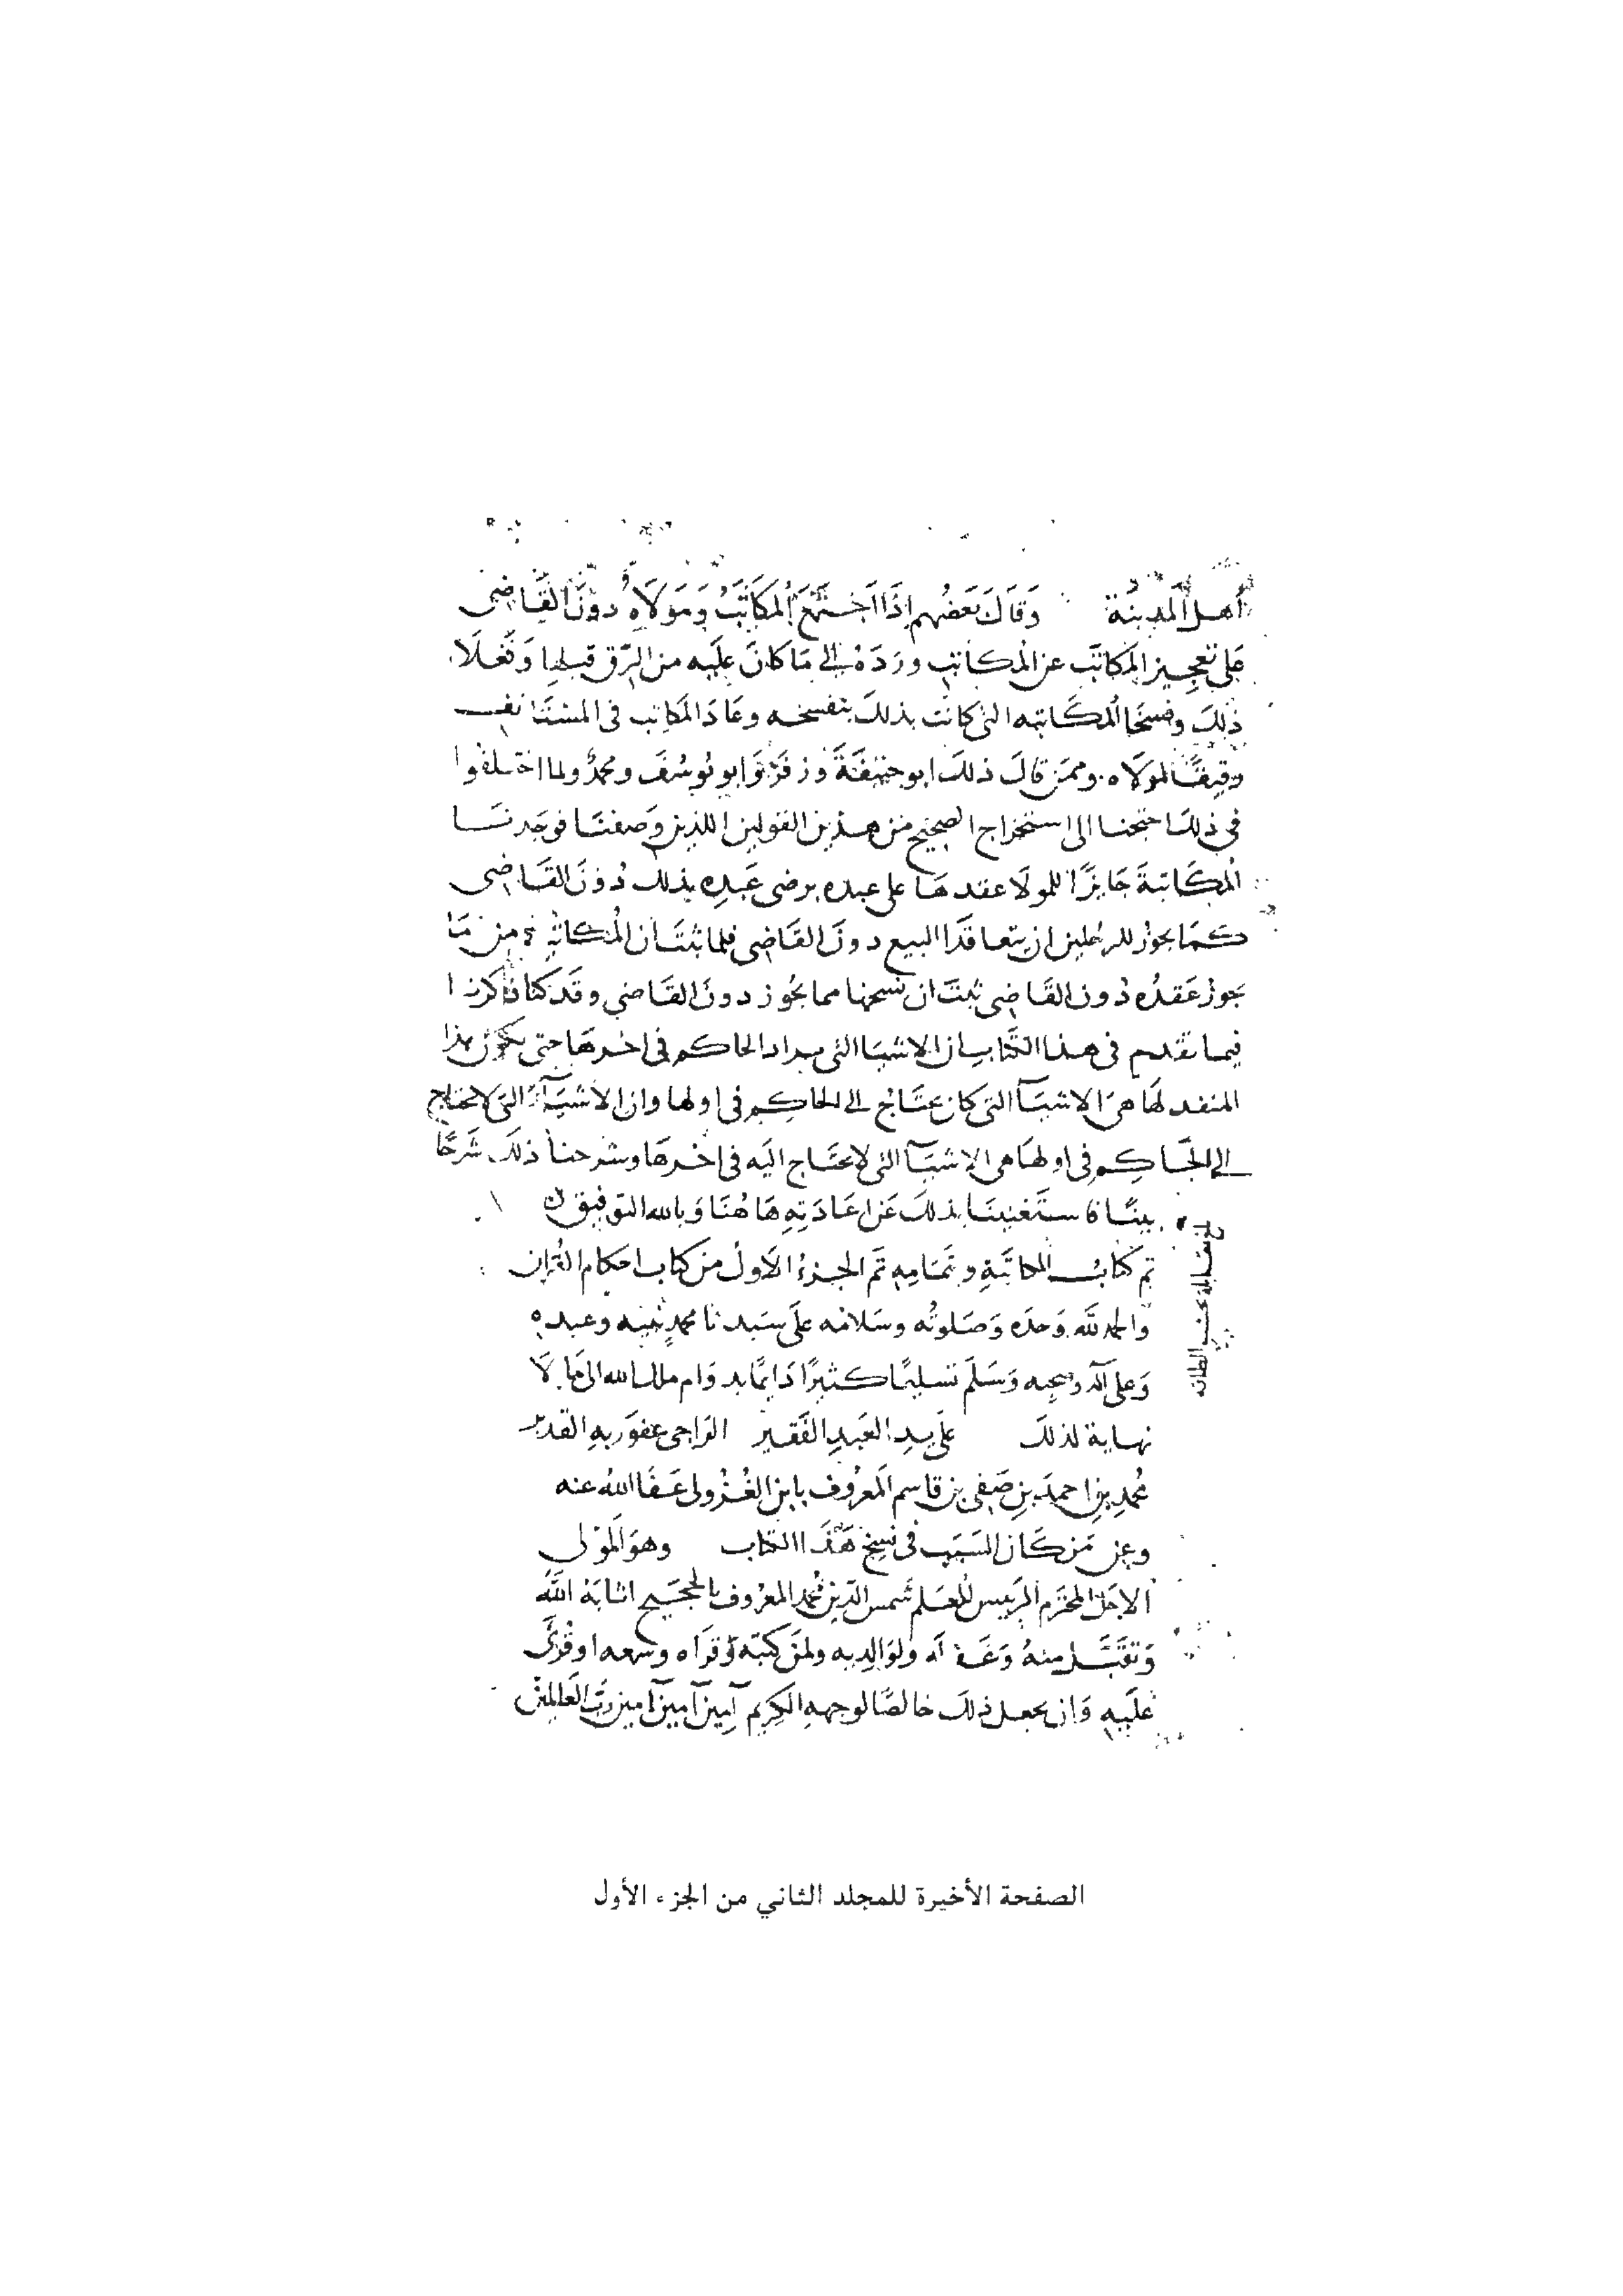 أهل المدينة وَقَالَ بَعضُهم إذَا اَجتَمَعَ اُلمكَاتَبُ وَمَولَاهُ دوُنَ القَاضِى
عَلى تعجِيز المكَاتَب عن المكاتبه ورَدَهُ الى مَا كانَ عَلَيه من الرّق قبلها وَفَعَلَا
ذلِكَ وفسَخَا اُلمكَاتبه التى كانَت بذلكَ تنفسخه وعَادَ المكاتب فى المستَانف
رقيقًا لمولَاه وممن قالَ ذلكَ ابو حنيفَةَ وزفَرُ وَابو يُوسُفَ ومحمدٌ ولما اختلفوا
فى ذلكَ احتجنا الى استخراج الصحيح من هذين القولين اللذين وَصفنَا فوجَدنَا
اُلمكَاتبةَ جَايزًا للمولَا عقدهَا على عبده برضى عَبدِه بذلك دُونَ القَاضى
كمَا يجوز للرجلين ان يتعاقَدَا البيع دونَ القَاضى فلما ثبتَ ان اُلمكاتبة من مَا
يجوز عَقدُه دُون القَاضى ثبتَ ان فسخها مما يجُوز دونَ القَاضى وقَد كنا ذَاكرنا
فيما تقدم فى هذا الكتَاب ان الاشيَا التى يراد الحاكم فى اخرهَا حتى يكون هذا
المنفد لهَا هىَ الاشيَآ التى كان يحتَاج الى الحاكِم فى اولها وان الاَشيَآءَ التى لا تحتاج
الى الحَاكِم فى اولهَا هى الاشيَآ التى لا يحتَاج اليَه فى اخرهَا وشرحنا ذلكَ شَرحًا
بينًا فاستَغنينَا بذلكَ عَن اعَادَتِهِ هَا هُنَا وَبالله التوفيق
تم كتَابُ المكاتَبةِ وبتمَامِهِ تَم الجزءُ الاَول من كتاب احكام القُران
وَالحمد لله وَحدَه وَصَلوتُه وسَلامُه عَلَى سَيدنا محمدٍ نبيه وعبده
وَعلى آله وصحبه وَسَلَم تسليمًا كثيرًا دَايمًا بدوَام ملك الله الى مَا لَا
نهاية لذلكَ عَلى يدِ العَبدِ الفَقيرِ الرَاجى عفوَ ربهِ القدير
مُحمدِ بنِ احمدَ بنِ صَفى بن قاسم المَعرُوف بابن الغُزُولى عَفَا اللهُ عنه
وعن مَن كَان السَبَب فى نسخ هَذَا الكتاب وهوَ المَولى
الاجَل المحترَم الرَييس المعَلم شَمس الدِين مُحمد المعرُوف اثابَهُ اللهُ
وَتقَبَّل منهُ وَغَفر له ولوَالدِيه ولمن كتبَه وَقرَاه وسمعه او قُرى
عَلَيهِ وَان يجعل ذلكَ خالصًا لوجههِ الكرِيم آمِينَ آمينَ آمين رَبَّ العَالمين
الصفحة الأخيرة للمجلد الثاني من الجزء الأول